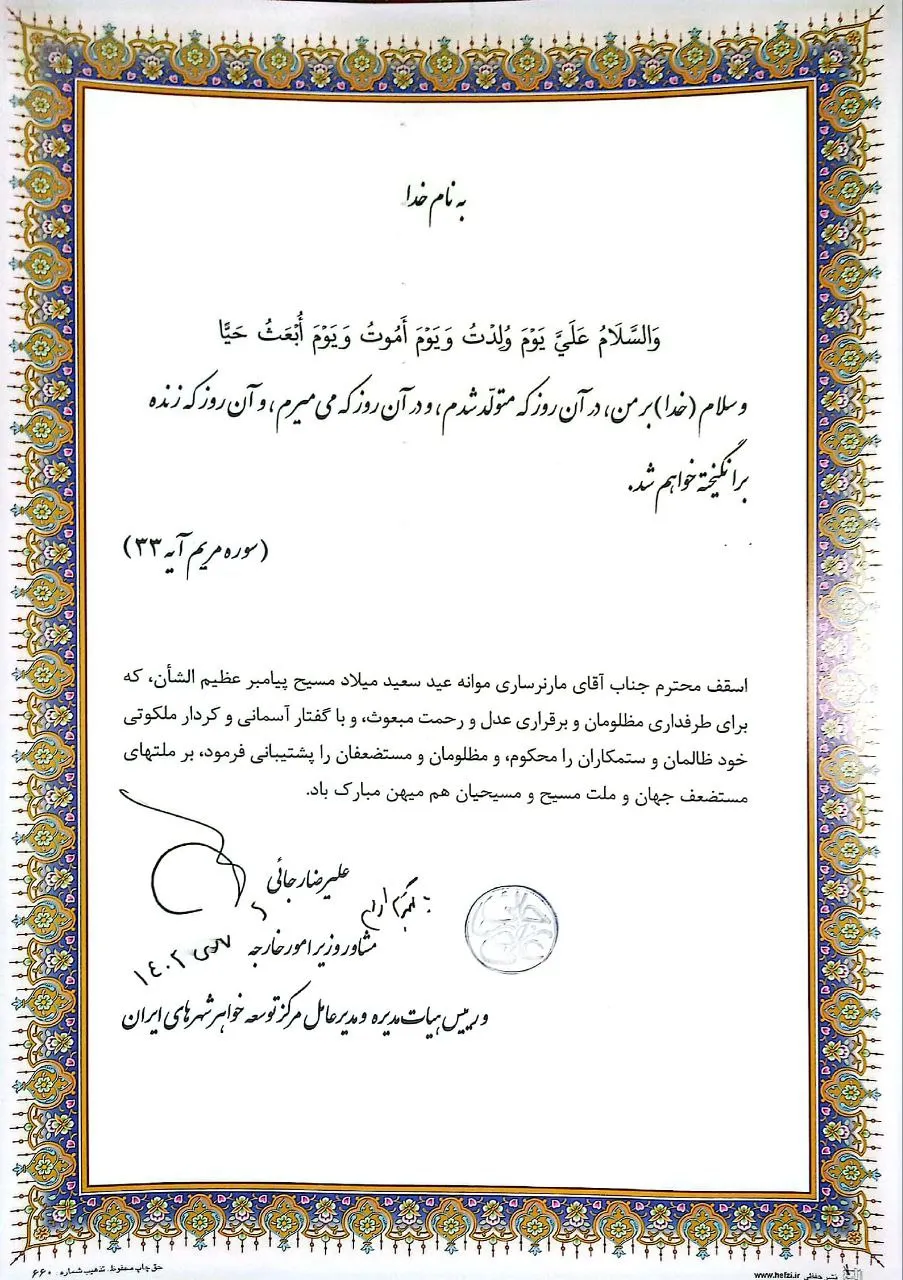 به نام خدا
وَالسَّلَامُ عَلَيَّ يَوْمَ وُلِدْتُ وَيَوْمَ أَمُوتُ وَيَوْمَ أُبْعَثُ حَيًّا
و سلام (خدا) بر من، در آن روز که متولّد شدم، و در آن روز که می میرم، و آن روز که زنده
برانگیخته خواهم شد.
(سوره مریم آیه ۳۳)
اسقف محترم جناب آقای مارنرسای موانه عید سعید میلاد مسیح پیامبر عظیم الشأن، که
برای طرفداری مظلومان و برقراری عدل و رحمت مبعوث، و با گفتار آسمانی و کردار ملکوتی
خود ظالمان و ستمکاران را محکوم، و مظلومان و مستضعفان را پشتیبانی فرمود، بر ملتهای
مستضعف جهان و ملت مسیح و مسیحیان هم میهن مبارک باد.
علیرضا رجائی
مشاور وزیر امور خارجه
۱۴۰۲
و رییس هیات مدیره و مدیرعامل مرکز توسعه خواهرشهرهای ایران
حق چاپ محفوظ. تذهیب شماره ۶۶۰
www.hefzi.ir